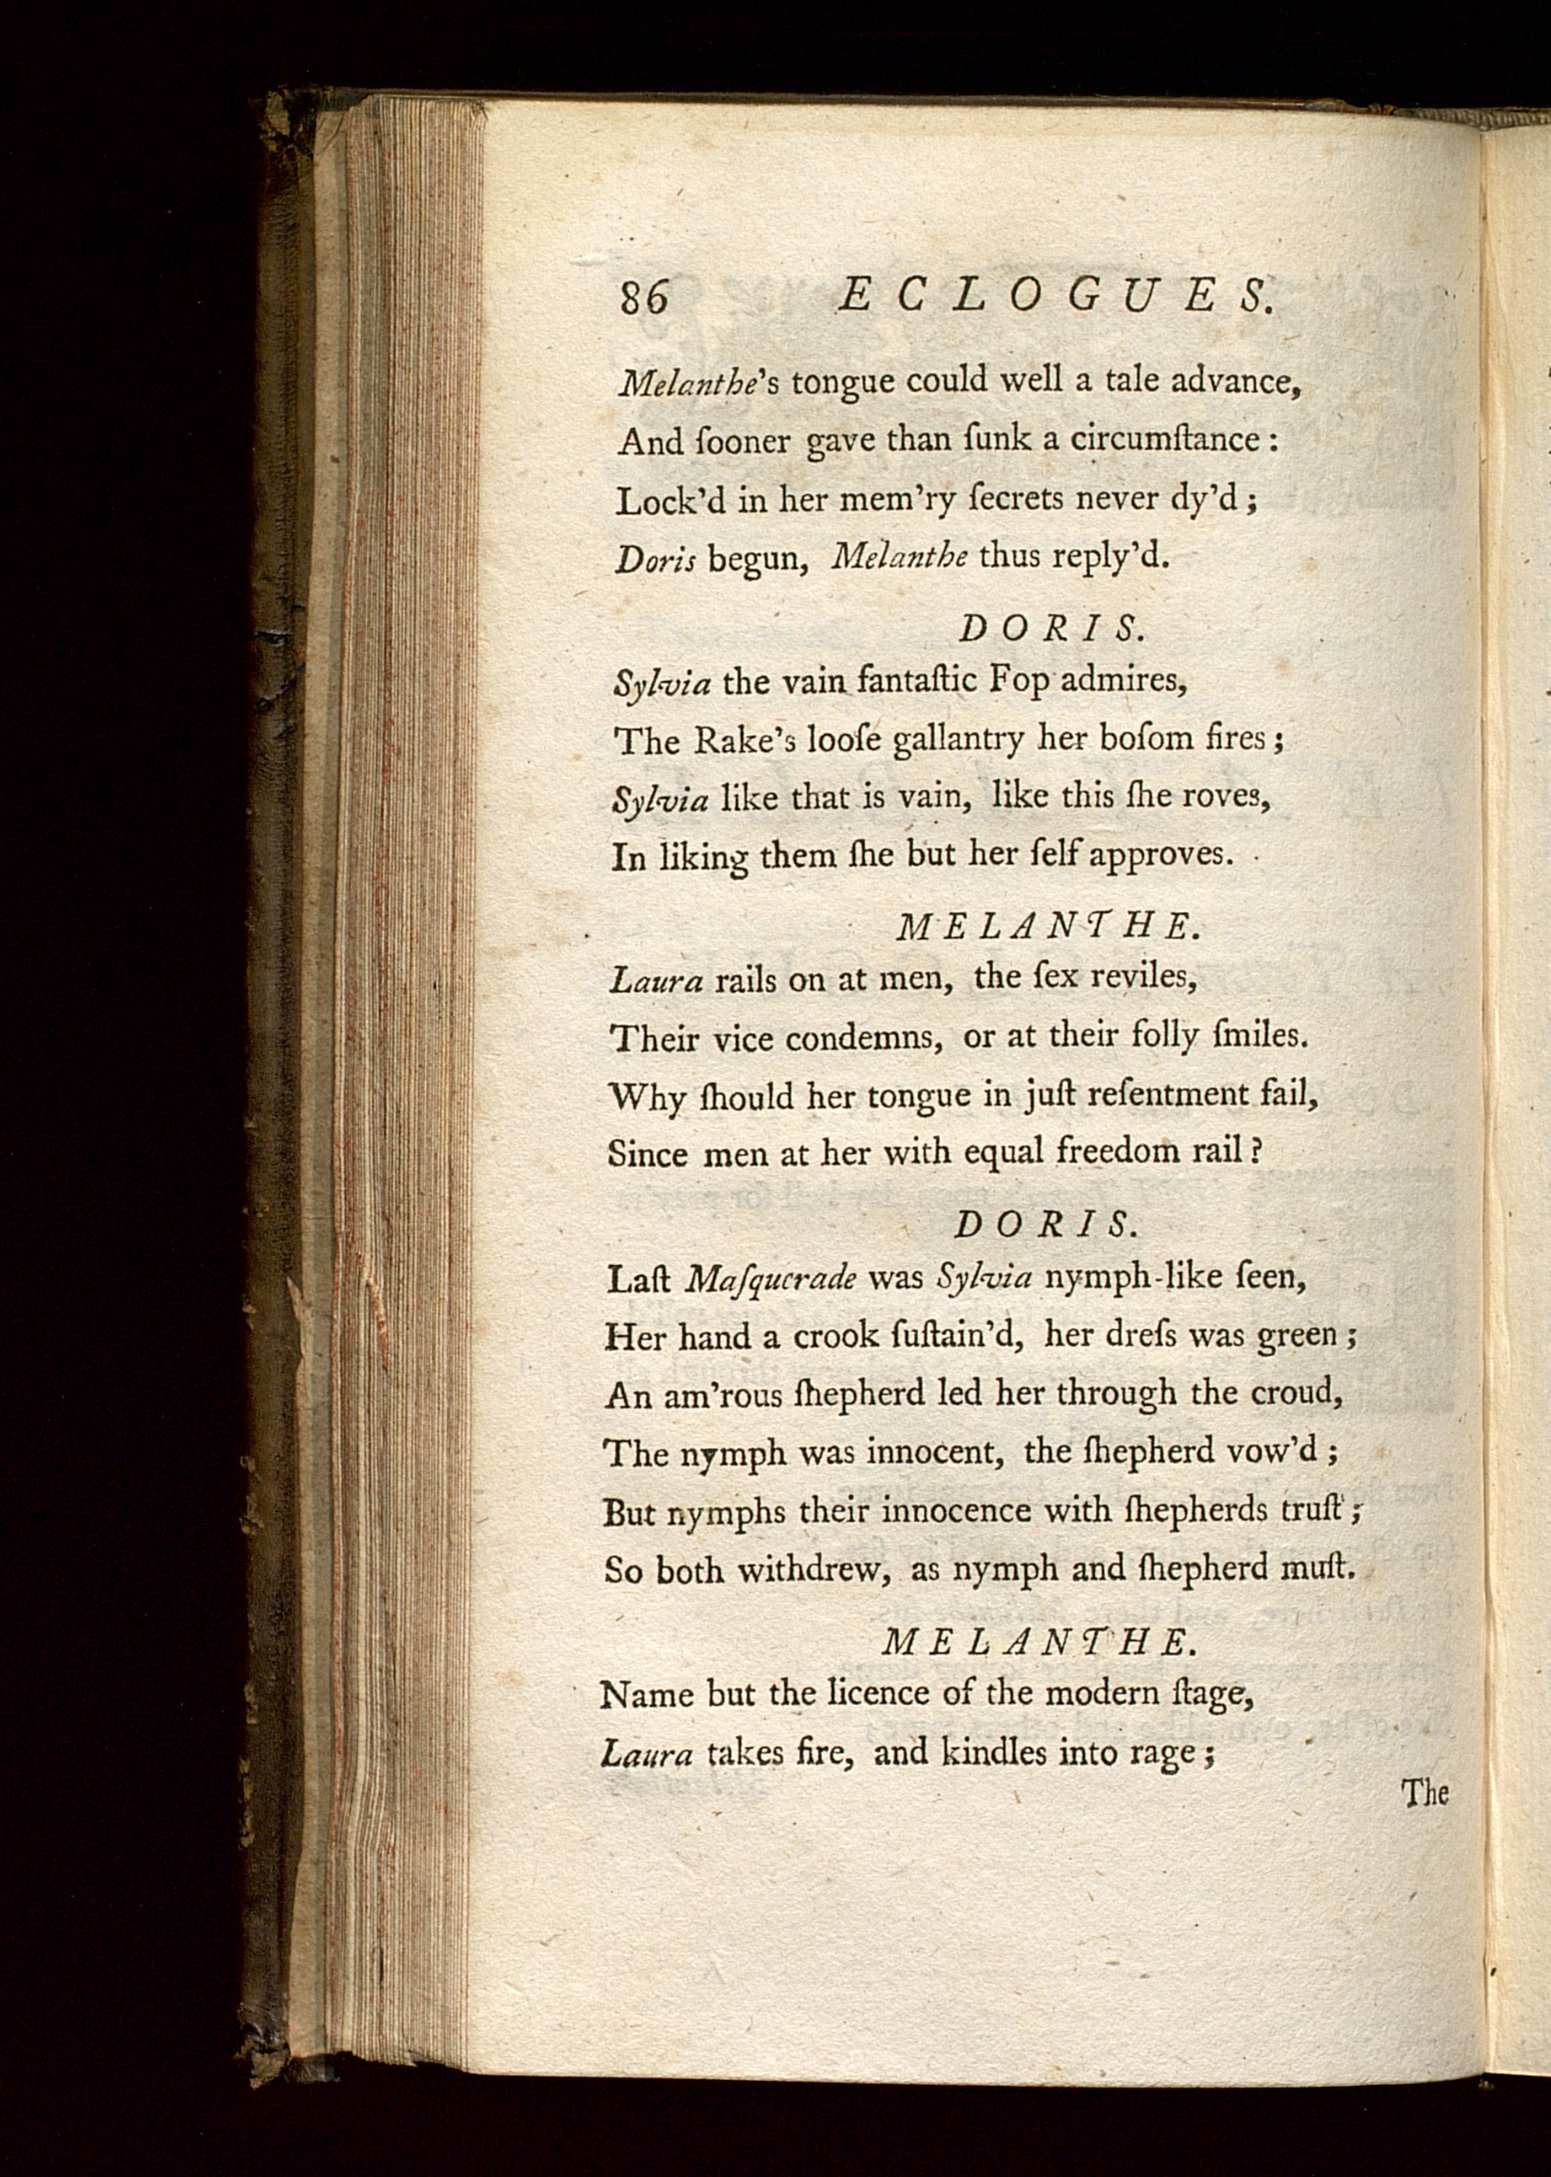 86 ECLOGUES.
Melanthe's tongue could well a tale advance,
And ſooner gave than ſunk a circumſtance :
Lock'd in her mem'ry ſecrets never dy'd ;
Doris begun, Melanthe thus reply'd.
DORIS.
Sylvia the vain fantaſtic Fop admires,
The Rake's looſe gallantry her boſom fires ;
Sylvia like that is vain, like this ſhe roves,
In liking them ſhe but her ſelf approves.
MELANTHE.
Laura rails on at men, the ſex reviles,
Their vice condemns, or at their folly ſmiles.
Why ſhould her tongue in juſt reſentment fail,
Since men at her with equal freedom rail ?
DORIS.
Laſt Maſquerade was Sylvia nymph-like ſeen,
Her hand a crook ſuſtain'd, her dreſs was green ;
An am'rous ſhepherd led her through the croud,
The nymph was innocent, the ſhepherd vow'd ;
But nymphs their innocence with ſhepherds truſt ;
So both withdrew, as nymph and ſhepherd muſt.
MELANTHE.
Name but the licence of the modern ſtage,
Laura takes fire, and kindles into rage ;
The